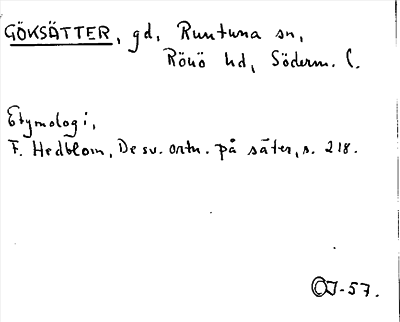 GÖKSÄTTER, gd, Runtuna sn,
Rönö hd, Söderm. l.
Etymologi,
F. Hedblom, De sv. ortn. på säter, s. 218.
OJ-57.